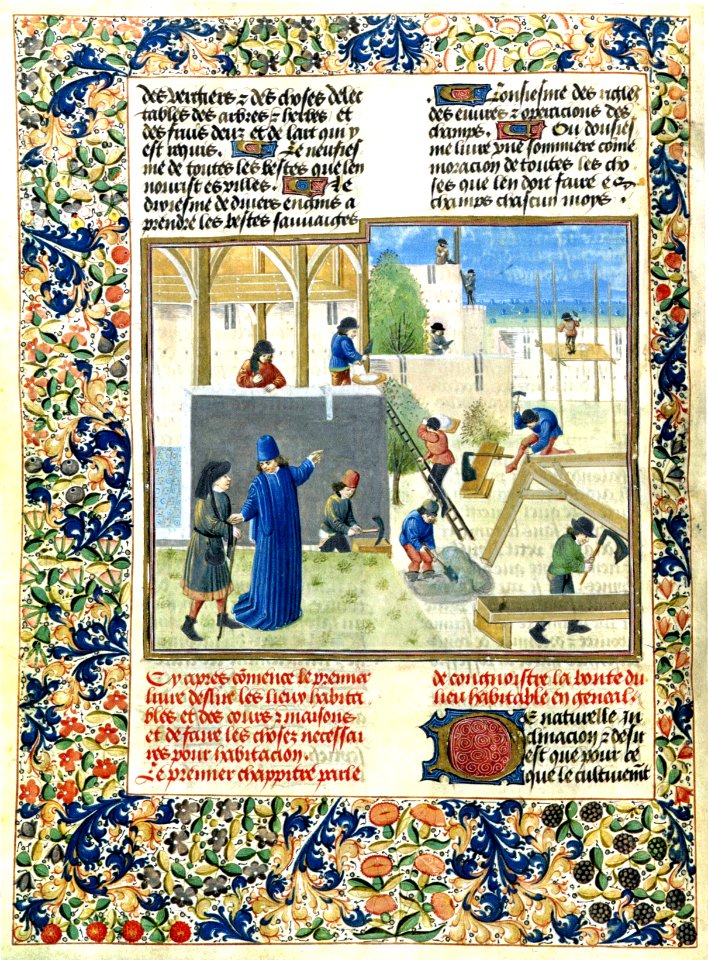 des vergiers ⁊ des choses delec
tables des arbres ⁊ herbes et
des fruis deux et de lart qui y
est requis. Le neufies
me de toutes les bestes que len
nourist es villes. Le
dixiesme de divers engins a
prendre les bestes sauvaiges
Lonsiesme des rigles
des euvres ⁊ operacions des
champs. Ou dousies
me livre une sommiere cõme
moracion de toutes les cho
ses que len doit faire es
champs chascun moys.
Cy aprés cõmence le premier
livre des lieux habita
bles et des cours ⁊ maisons
et de faire les choses necessai
res pour habitacion.
Le premier chappitre parle
de congnoistre la bonte du
lieu habitable en general.
De naturelle in
clinacion ⁊ desir
est que pour ce
que le cultivement